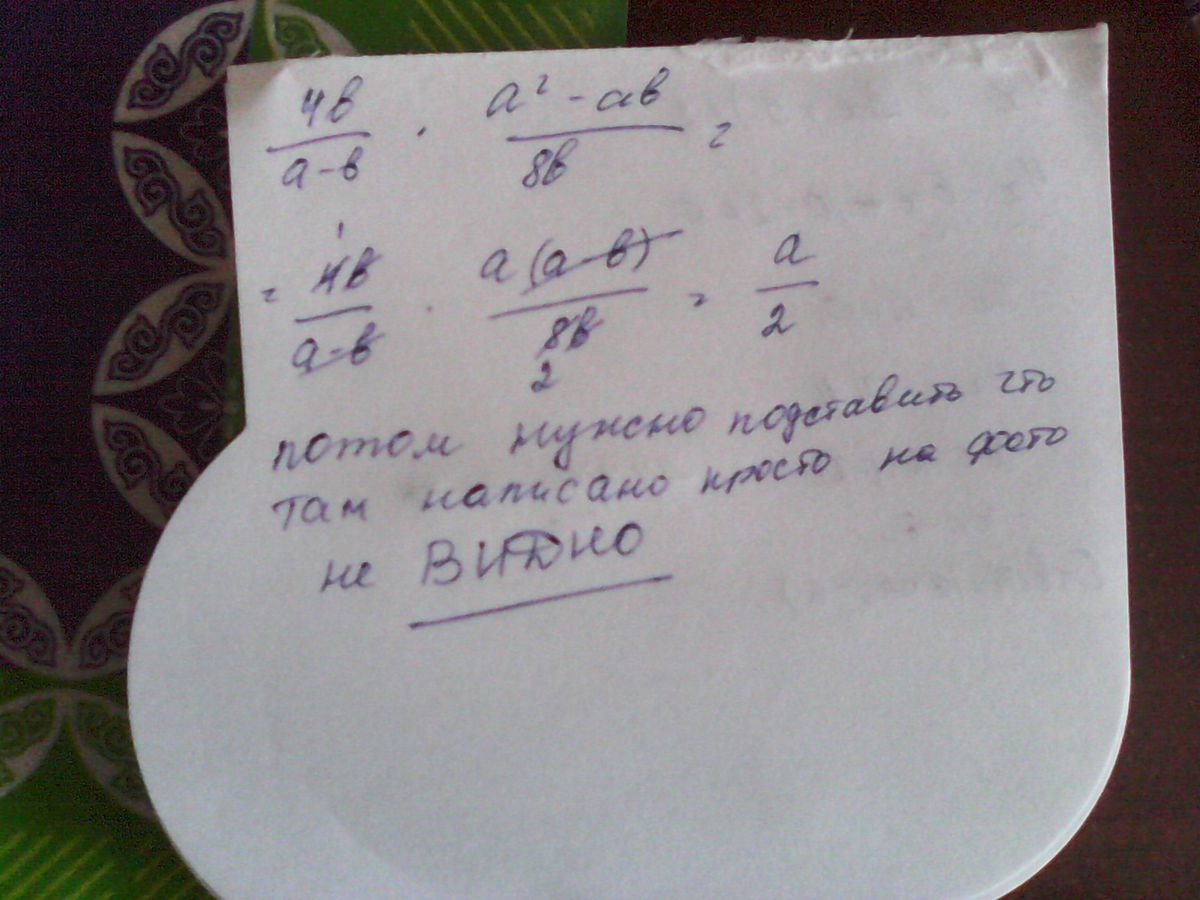 4в/а-в · а² - ав/8в =
= 4в/а-в · а(а-в)/8в = а/2
1
2
потом нужно подставить что
там написано просто на фото
не ВИДНО